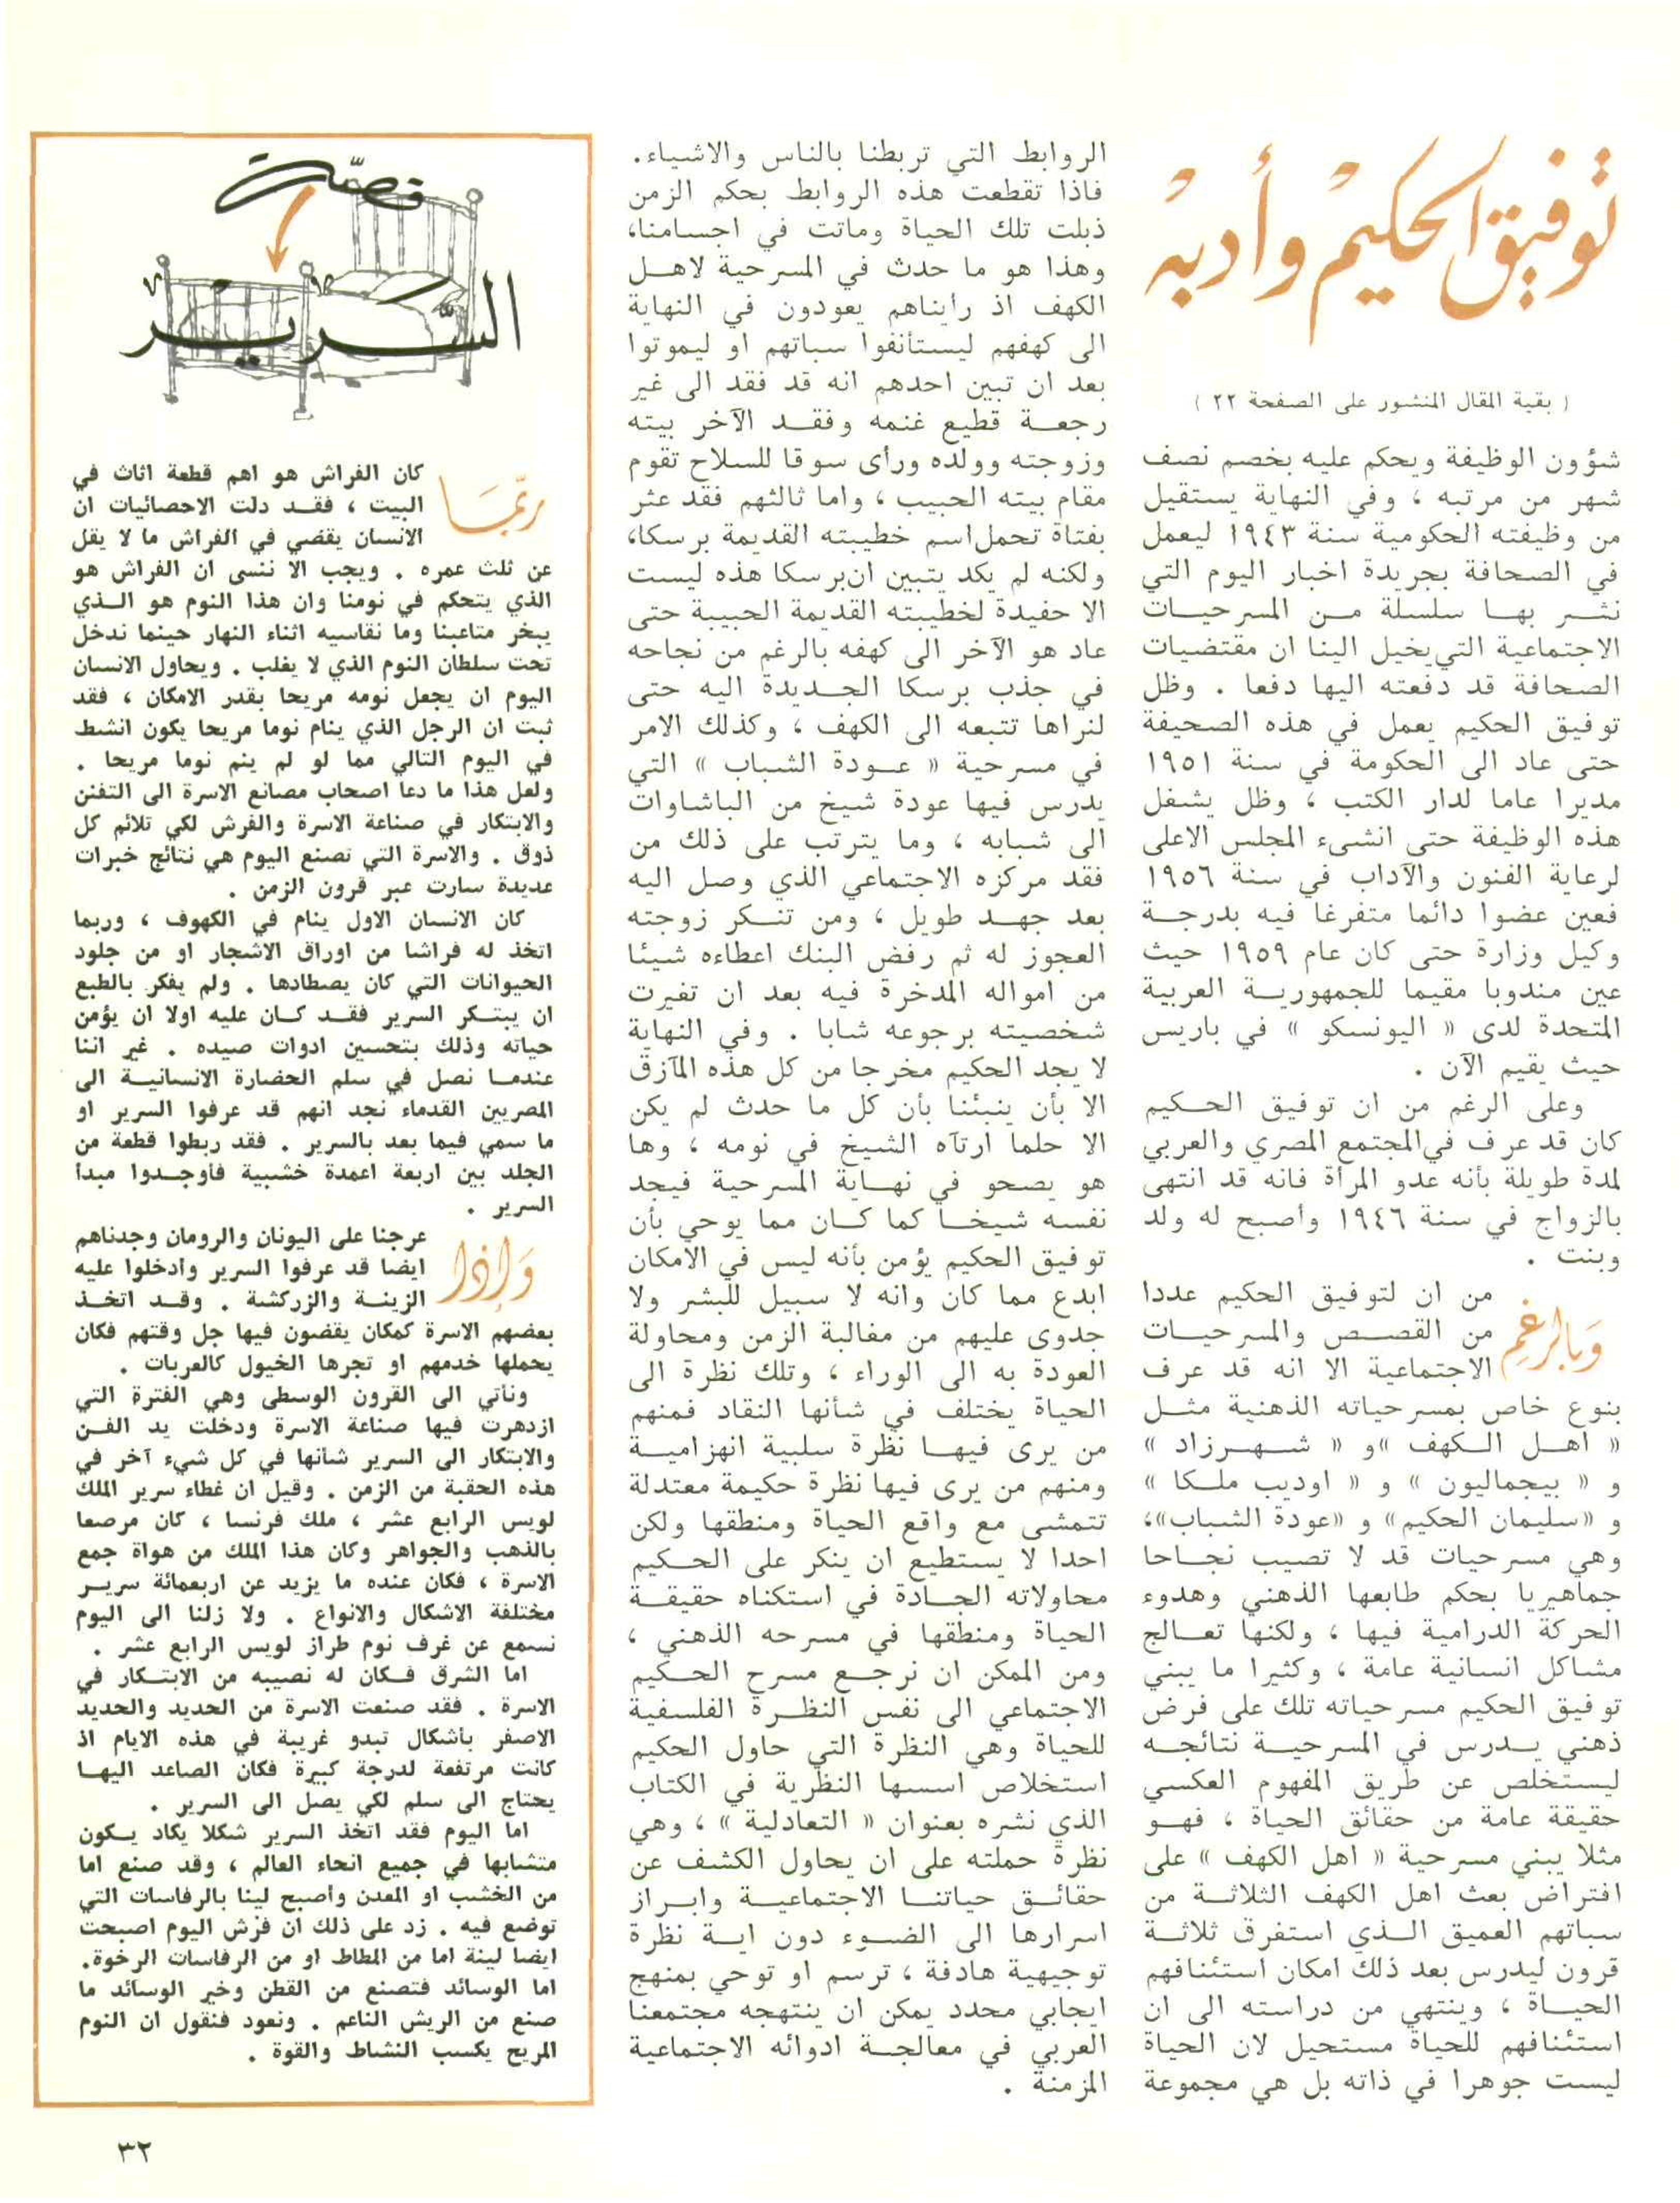 توفيق الحكيم وأدبه
( بقية المقال المنشور على الصفحة ٢٢ )
شؤون الوظيفة ويحكم عليه بخصم نصف
شهر من مرتبه ، وفي النهاية يستقيل
من وظيفته الحكومية سنة ١٩٤٣ ليعمل
في الصحافة بجريدة اخبار اليوم التي
نشـر بهـا سلسلة مـن المسرحيـات
الاجتماعية التي يخيل الينا ان مقتضيات
الصحافة قد دفعته اليها دفعا . وظل
توفيق الحكيم يعمل في هذه الصحيفة
حتى عاد الى الحكومة في سنة ١٩٥١
مديرا عاما لدار الكتب ، وظل يشغل
هذه الوظيفة حتى انشىء المجلس الاعلى
لرعاية الفنون والآداب في سنة ١٩٥٦
فعين عضوا دائما متفرغا فيه بدرجـة
وكيل وزارة حتى كان عام ١٩٥٩ حيث
عين مندوبا مقيما للجمهوريـة العربية
المتحدة لدى « اليونسكو » في باريس
حيث يقيم الآن .
وعلى الرغم من ان توفيق الحـكيم
كان قد عرف في المجتمع المصري والعربي
لمدة طويلة بأنه عدو المرأة فانه قد انتهى
بالزواج في سنة ١٩٤٦ وأصبح له ولد
وبنت .
وبالرغم من ان لتوفيق الحكيم عددا
من القصـص والمسرحيـات
الاجتماعية الا انه قد عرف
بنوع خاص بمسرحياته الذهنية مثـل
« اهـل الـكهف » و « شـهـرزاد »
و « بيجماليون » و « اوديب ملـكا »
و «سليمان الحكيم» و «عودة الشباب»،
وهي مسرحيات قد لا تصيب نجـاحا
جماهيريا بحكم طابعها الذهني وهدوء
الحركة الدرامية فيها ، ولكنها تعـالج
مشاكل انسانية عامة ، وكثيرا ما يبني
توفيق الحكيم مسرحياته تلك على فرض
ذهني يـدرس في المسرحيـة نتائجـه
ليستخلص عن طريق المفهوم العكسي
حقيقة عامة من حقائق الحياة ، فهـو
مثلا يبني مسرحية « اهل الكهف » على
افتراض بعث اهل الكهف الثلاثـة من
سباتهم العميق الـذي استغرق ثلاثـة
قرون ليدرس بعد ذلك امكان استئنافهم
الحيـاة ، وينتهي من دراسته الى ان
استئنافهم للحياة مستحيل لان الحياة
ليست جوهرا في ذاته بل هي مجموعة
الروابط التي تربطنا بالناس والاشياء.
فاذا تقطعت هذه الروابط بحكم الزمن
ذبلت تلك الحياة وماتت في اجسامنا،
وهذا هو ما حدث في المسرحية لاهـل
الكهف اذ رأيناهم يعودون في النهاية
الى كهفهم ليستأنفوا سباتهم او ليموتوا
بعد ان تبين احدهم انه قد فقد الى غير
رجعـة قطيع غنمه وفقـد الآخر بيته
وزوجته وولده ورأى سوقا للسلاح تقوم
مقام بيته الحبيب ، واما ثالثهم فقد عثر
بفتاة تحمل اسم خطيبته القديمة برسكا،
ولكنه لم يكد يتبين ان برسكا هذه ليست
الا حفيدة لخطيبته القديمة الحبيبة حتى
عاد هو الآخر الى كهفه بالرغم من نجاحه
في جذب برسكا الجـديدة اليه حتى
لنراها تتبعه الى الكهف ، وكذلك الامر
في مسرحية « عـودة الشباب » التي
يدرس فيها عودة شيخ من الباشاوات
الى شبابه ، وما يترتب على ذلك من
فقد مركزه الاجتماعي الذي وصل اليه
بعد جهـد طويل ، ومن تنـكر زوجته
العجوز له ثم رفض البنك اعطاءه شيئا
من امواله المدخرة فيه بعد ان تغيرت
شخصيته برجوعه شابا . وفي النهاية
لا يجد الحكيم مخرجا من كل هذه المآزق
الا بأن ينبئنا بأن كل ما حدث لم يكن
الا حلما ارتآه الشيخ في نومه ، وها
هو يصحو في نهـاية المسرحية فيجد
نفسه شيخـا كما كـان مما يوحي بأن
توفيق الحكيم يؤمن بأنه ليس في الامكان
ابدع مما كان وانه لا سبيل للبشر ولا
جدوى عليهم من مغالبة الزمن ومحاولة
العودة به الى الوراء ، وتلك نظرة الى
الحياة يختلف في شأنها النقاد فمنهم
من يرى فيهـا نظرة سلبية انهزاميـة
ومنهم من يرى فيها نظرة حكيمة معتدلة
تتمشى مع واقع الحياة ومنطقها ولكن
احدا لا يستطيع ان ينكر على الحـكيم
محاولاته الجـادة في استكناه حقيقـة
الحياة ومنطقها في مسرحه الذهني ،
ومن الممكن ان نرجـع مسرح الحـكيم
الاجتماعي الى نفس النظـرة الفلسفية
للحياة وهي النظرة التي حاول الحكيم
استخلاص اسسها النظرية في الكتاب
الذي نشره بعنوان « التعادلية » ، وهي
نظرة حملته على ان يحاول الكشف عن
حقائـق حياتنـا الاجتماعيـة وابـراز
اسرارها الى الضـوء دون ايـة نظرة
توجيهية هادفة ، ترسم او توحي بمنهج
ايجابي محدد يمكن ان ينتهجه مجتمعنا
العربي في معالجـة ادوائه الاجتماعية
المزمنة .
قصة
السرير
ربما كان الفراش هو اهم قطعة اثاث في
البيت ، فقـد دلت الاحصائيات ان
الانسان يقضي في الفراش ما لا يقل
عن ثلث عمره . ويجب الا ننسى ان الفراش هو
الذي يتحكم في نومنا وان هذا النوم هو الـذي
يبخر متاعبنا وما نقاسيه اثناء النهار حينما ندخل
تحت سلطان النوم الذي لا يغلب . ويحاول الانسان
اليوم ان يجعل نومه مريحا بقدر الامكان ، فقد
ثبت ان الرجل الذي ينام نوما مريحا يكون انشط
في اليوم التالي مما لو لم ينم نوما مريحا .
ولعل هذا ما دعا اصحاب مصانع الاسرة الى التفنن
والابتكار في صناعة الاسرة والفرش لكي تلائم كل
ذوق . والاسرة التي تصنع اليوم هي نتائج خبرات
عديدة سارت عبر قرون الزمن .
كان الانسان الاول ينام في الكهوف ، وربما
اتخذ له فراشا من اوراق الاشجار او من جلود
الحيوانات التي كان يصطادها . ولم يفكر بالطبع
ان يبتـكر السرير فقـد كـان عليه اولا ان يؤمن
حياته وذلك بتحسين ادوات صيده . غير اننا
عندمـا نصل في سلم الحضارة الانسانيـة الى
المصريين القدماء نجد انهم قد عرفوا السرير او
ما سمي فيما بعد بالسرير . فقد ربطوا قطعة من
الجلد بين اربعة اعمدة خشبية فأوجـدوا مبدأ
السرير .
وإذا عرجنا على اليونان والرومان وجدناهم
ايضا قد عرفوا السرير وأدخلوا عليه
الزينـة والزركشة . وقـد اتخـذ
بعضهم الاسرة كمكان يقضون فيها جل وقتهم فكان
يحملها خدمهم او تجرها الخيول كالعربات .
ونأتي الى القرون الوسطى وهي الفترة التي
ازدهرت فيها صناعة الاسرة ودخلت يد الفـن
والابتكار الى السرير شأنها في كل شيء آخر في
هذه الحقبة من الزمن . وقيل ان غطاء سرير الملك
لويس الرابع عشر ، ملك فرنسا ، كان مرصعا
بالذهب والجواهر وكان هذا الملك من هواة جمع
الاسرة ، فكان عنده ما يزيد عن اربعمائة سريـر
مختلفة الاشكال والانواع . ولا زلنا الى اليوم
نسمع عن غرف نوم طراز لويس الرابع عشر .
اما الشرق فـكان له نصيبه من الابتـكار في
الاسرة . فقد صنعت الاسرة من الحديد والحديد
الاصفر بأشكال تبدو غريبة في هذه الايام اذ
كانت مرتفعة لدرجة كبيرة فكان الصاعد اليهـا
يحتاج الى سلم لكي يصل الى السرير .
اما اليوم فقد اتخذ السرير شكلا يكاد يـكون
متشابها في جميع انحاء العالم ، وقد صنع اما
من الخشب او المعدن وأصبح لينا بالرفاسات التي
توضع فيه . زد على ذلك ان فرش اليوم اصبحت
ايضا لينة اما من المطاط او من الرفاسات الرخوة.
اما الوسائد فتصنع من القطن وخير الوسائد ما
صنع من الريش الناعم . ونعود فنقول ان النوم
المريح يكسب النشاط والقوة .
٣٢